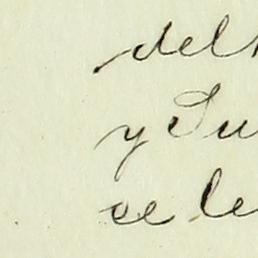 del
y Su
se le